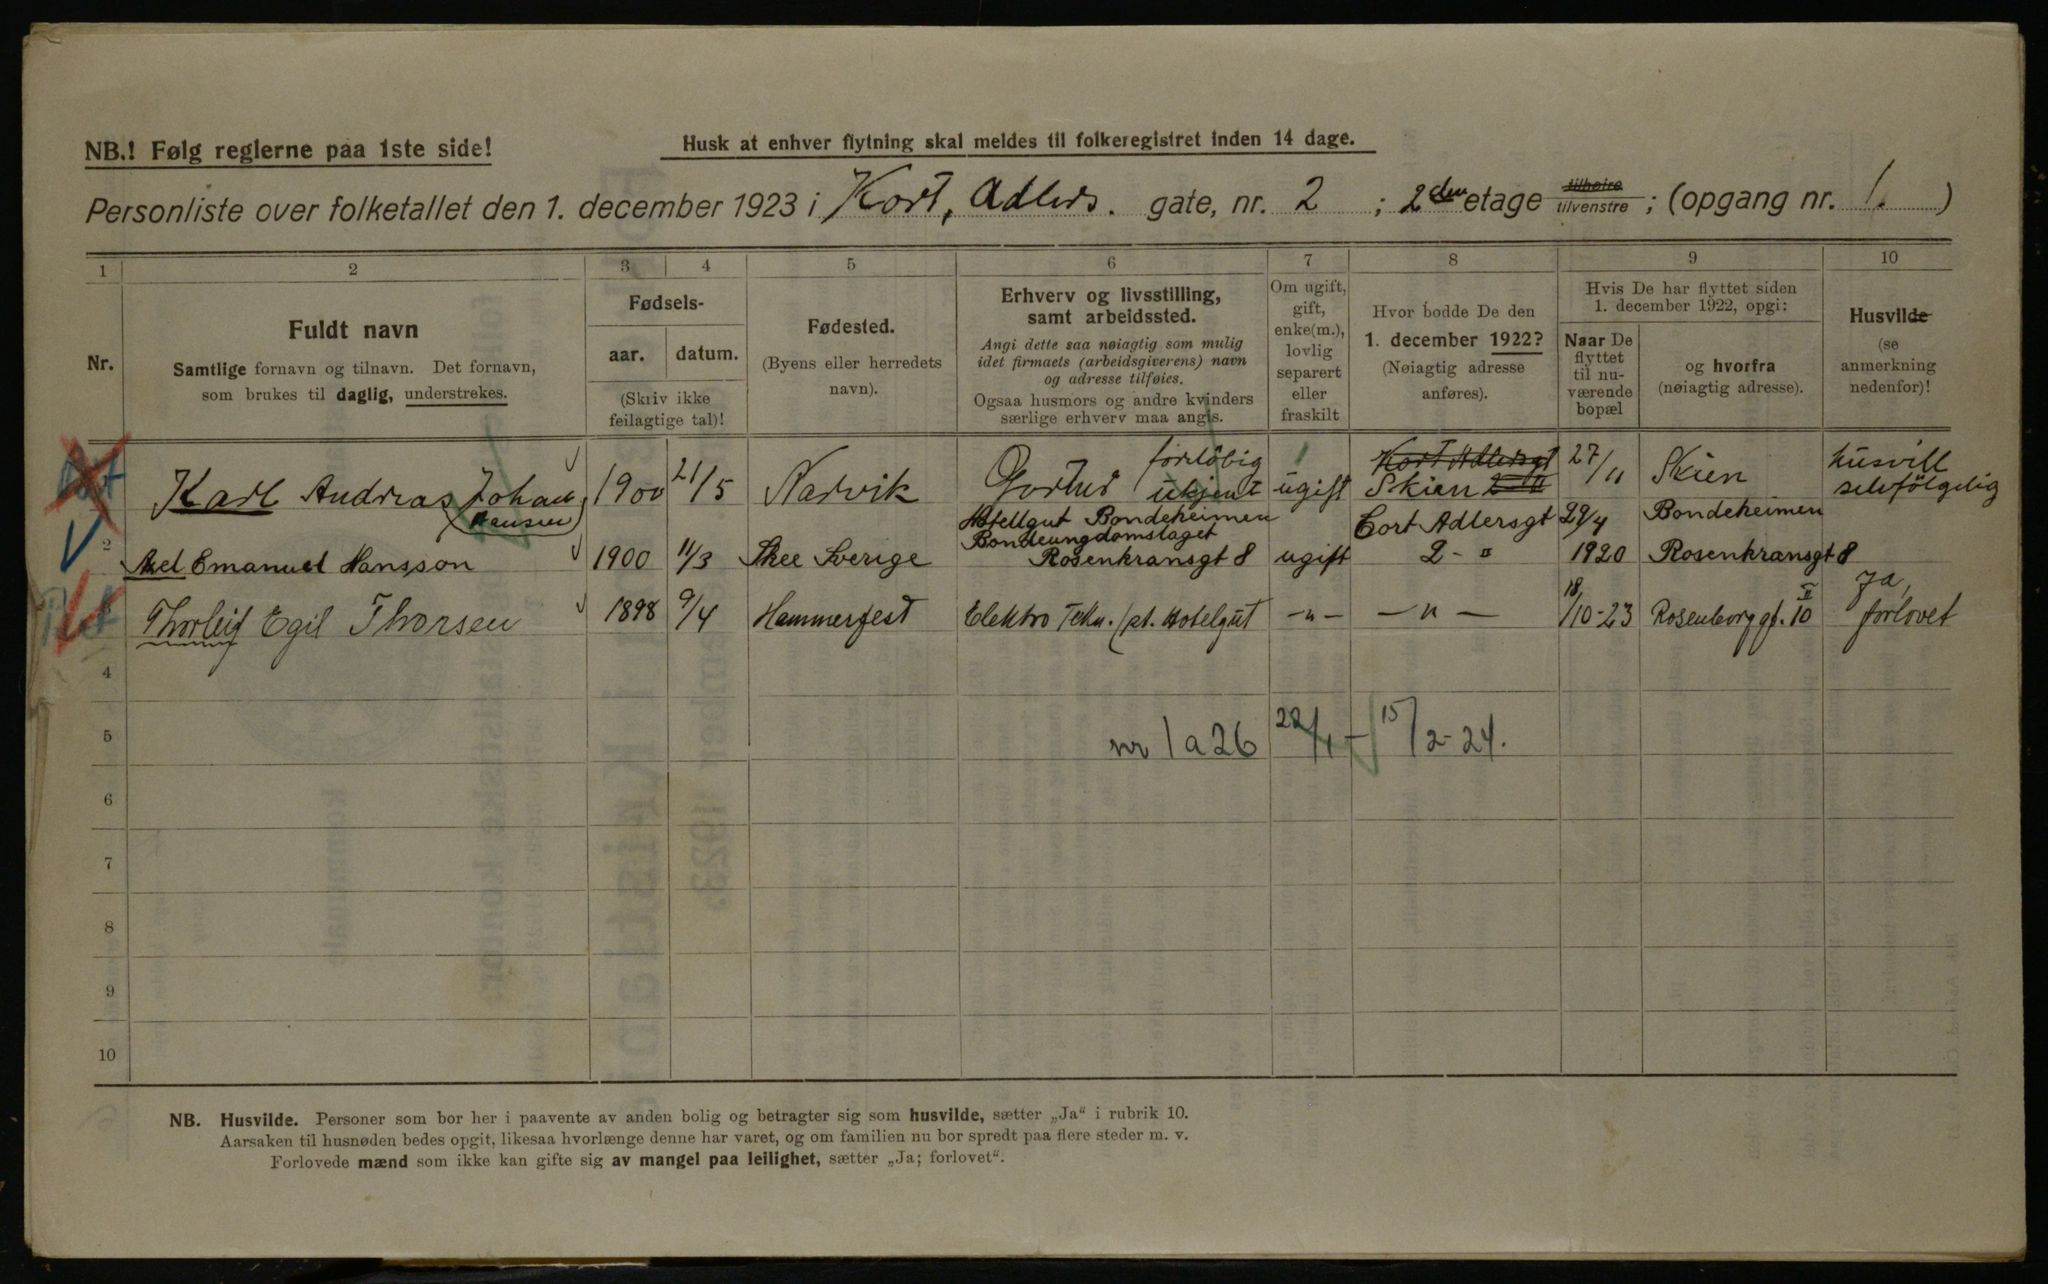 NB.! Følg reglerne paa 1ste side!
Husk at enhver flytning skal meldes til folkeregistret inden 14 dage.
Personliste over folketallet den 1. december 1923 i Kort, Adlers. gate, nr. 2 ; 2den etage tilhøire tilvenstre ; (opgang nr. 1. )
1 2 3 4 5 6 7 8 9 10
Nr.
Fuldt navn
Samtlige fornavn og tilnavn. Det fornavn,
som brukes til daglig, understrekes.
Fødsels-
aar. datum.
(Skriv ikke
feilagtige tal)!
Fødested.
(Byens eller herredets
navn).
Erhverv og livsstilling,
samt arbeidssted.
Angi dette saa nøiagtig som mulig
idet firmaets (arbeidsgiverens) navn
og adresse tilføies.
Ogsaa husmors og andre kvinders
særlige erhverv maa angis.
Om ugift,
gift,
enke(m.),
lovlig
separert
eller
fraskilt
Hvor bodde De den
1. december 1922?
(Nøiagtig adresse
anføres).
Hvis De har flyttet siden
1. december 1922, opgi:
Naar De
flyttet
til nu-
værende
bopæl
og hvorfra
(nøiagtig adresse).
Husvilde
(se
anmerkning
nedenfor)!
Karl Andreas Johan
(Hansen)
1900 21/5 Narvik
forløbig
ukjent
ugift
Kort Adlersgt
Skien 2 II
27/11 Skien
husvill
selvfølgelig
2
Axel Emanuel Hansson 1900 11/3 Skee Sverige
Hotellgut Bondeheimen
Bondeungdomslaget
Rosenkransgt 8
ugift
Cort Adlersgt
2 - II
29/4
1920
Bondeheimen
Rosenkransgt 8
3
Thorleif Egil Thorsen 1898 9/4 Hammerfest Elektro Tekn. / pt. Hotelgut -"- -"- 18/10-23 Rosenborggt. 10 II
Ja,
forlovet
4
5
nr 1 a 26 22/1 - 15/2-24.
6
7
8
9
10
NB. Husvilde. Personer som bor her i paavente av anden bolig og betragter sig som husvilde, sætter „Ja“ i rubrik 10.
Aarsaken til husnøden bedes opgit, likesaa hvorlænge denne har varet, og om familien nu bor spredt paa flere steder m. v.
Forlovede mænd som ikke kan gifte sig av mangel paa leilighet, sætter „Ja; forlovet“.